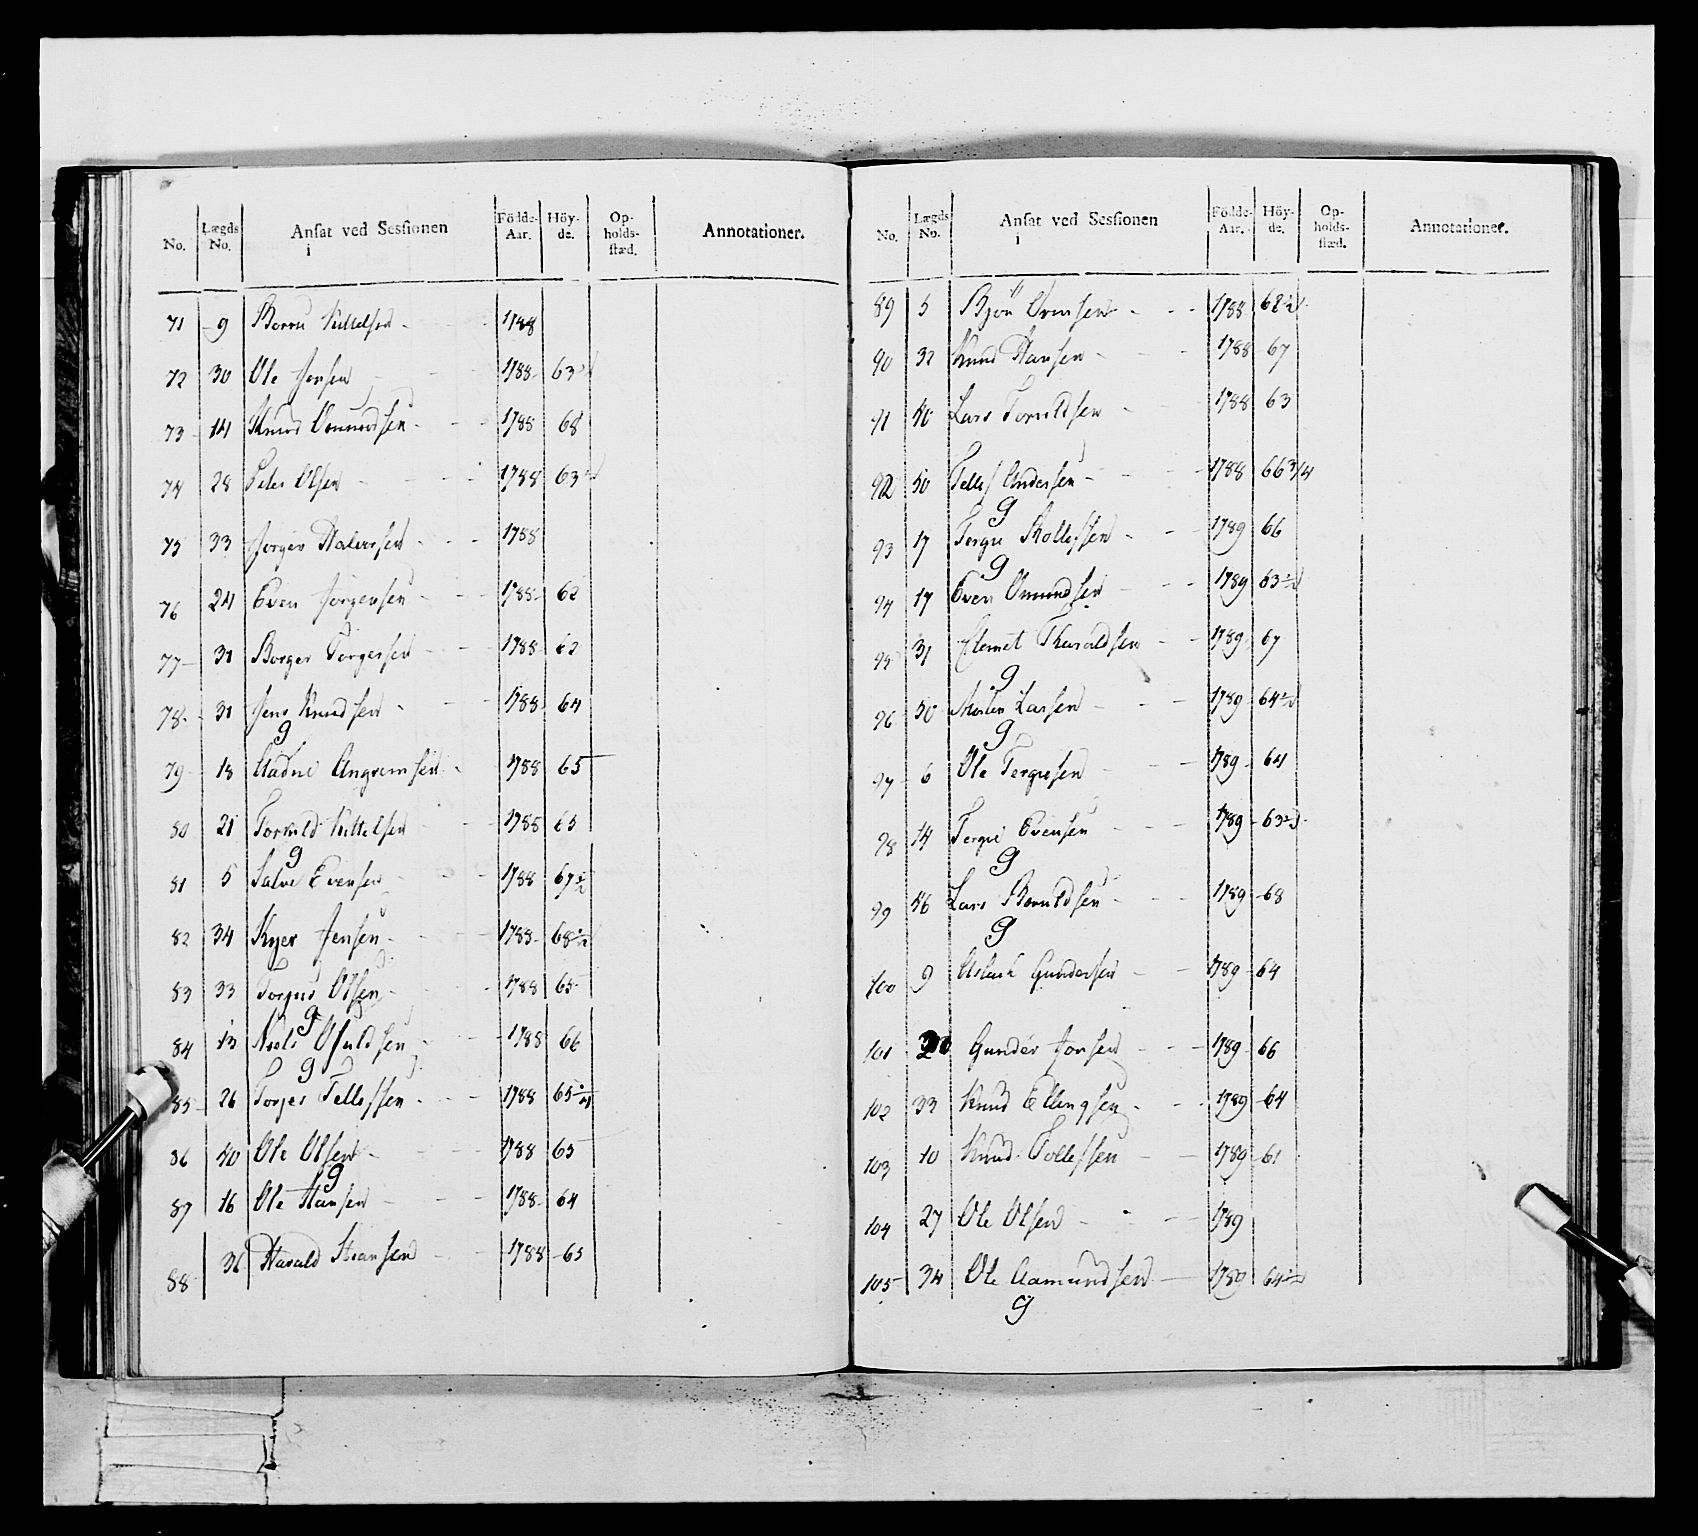 No. Lægds No. Ansat ved Sessionen i Födde-Aar. Höy-de. Op-holds-stæd. Annotationer.
71 9 Kittelsen - 1788
72 30 Ole Jensen - 1788 63
73 14 Knud Omundsen - 1788 68
74 28 Peder Olsen - 1788 63
75 33 Jörgen Halvorsen - 1788
76 24 Even Jörgensen - 1788 62
77 31 Börger Torgersen - 1788 62
78 31 Jens Knudsen - 1788 64
g
79 18 Aadne Angrimsen - 1788 65
80 21 Torkild Kittelsen - 1788 65
g
81 5 Salve Evensen - 1788 67½
82 34 Jensen - 1788 68½
83 33 Torgus Olsen - 1788 65
g
84 13 Niels Osuldsen - 1788 66
g
85 26 Torjer Tellefsen - 1788 65¼
86 40 Ole Olsen - 1788 65
g
87 16 Ole Hansen - 1788 64
88 36 Harald Hansen - 1788 65
No. Lægds No. Ansat ved Sessionen i Födde-Aar. Höy-de. Op-holds-stæd. Annotationer.
89 5 Björn Evensen - 1788 62½
90 32 Knud Hansen - 1788 67
91 40 Lars Torkildsen - 1788 63
92 50 Tellef Andersen - 1788 66¾
g
93 17 Tergie Rollefsen - 1789 66
g
94 17 Even Omundsen - 1789 63½
95 31 Clemet Tharaldsen - 1789 67
g
96 50 Morten Larsen - 1789 64½
g
97 6 Ole Tergiesen - 1789 64
98 14 Tergie Evensen - 1789 63½
g
99 46 Lars Torkildsen - 1789 68
g
100 9 Aslack Gundersen - 1789 64
101 Gunder Jonsen - 1789 66
102 33 Knud Ellingsen - 1789 64
103 10 Knud Tollefsen - 1789 61
104 27 Ole Olsen - 1789
105 34 Ole Aamundsen - 1789 64½
g